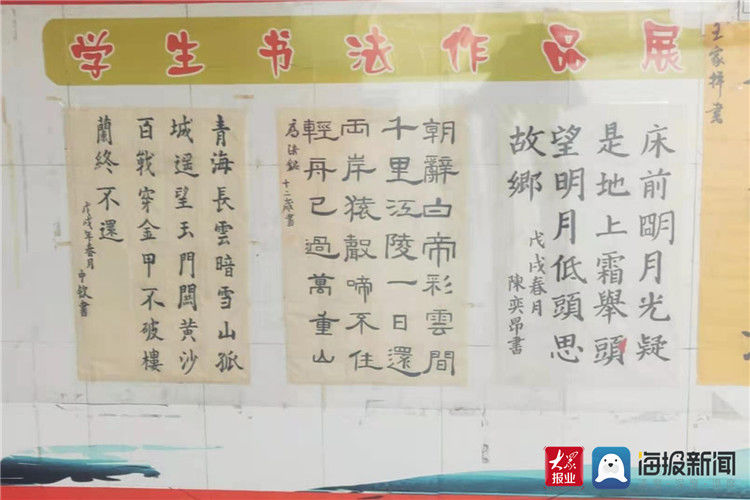 学生书法作品展
青海長雲暗雪山孤
城遥望玉門關黄沙
百戰穿金甲不破樓
蘭終不還
戊戌年春月申書
朝辭白帝彩雲間
千里江陵一日還
兩岸猿聲啼不住
輕舟已過萬重山
十二歲書
床前眀月光疑
是地上霜舉頭
望明月低頭思
故鄉
戊戌春月
陳奕昂書
王家祥書
大众报业
海报新闻